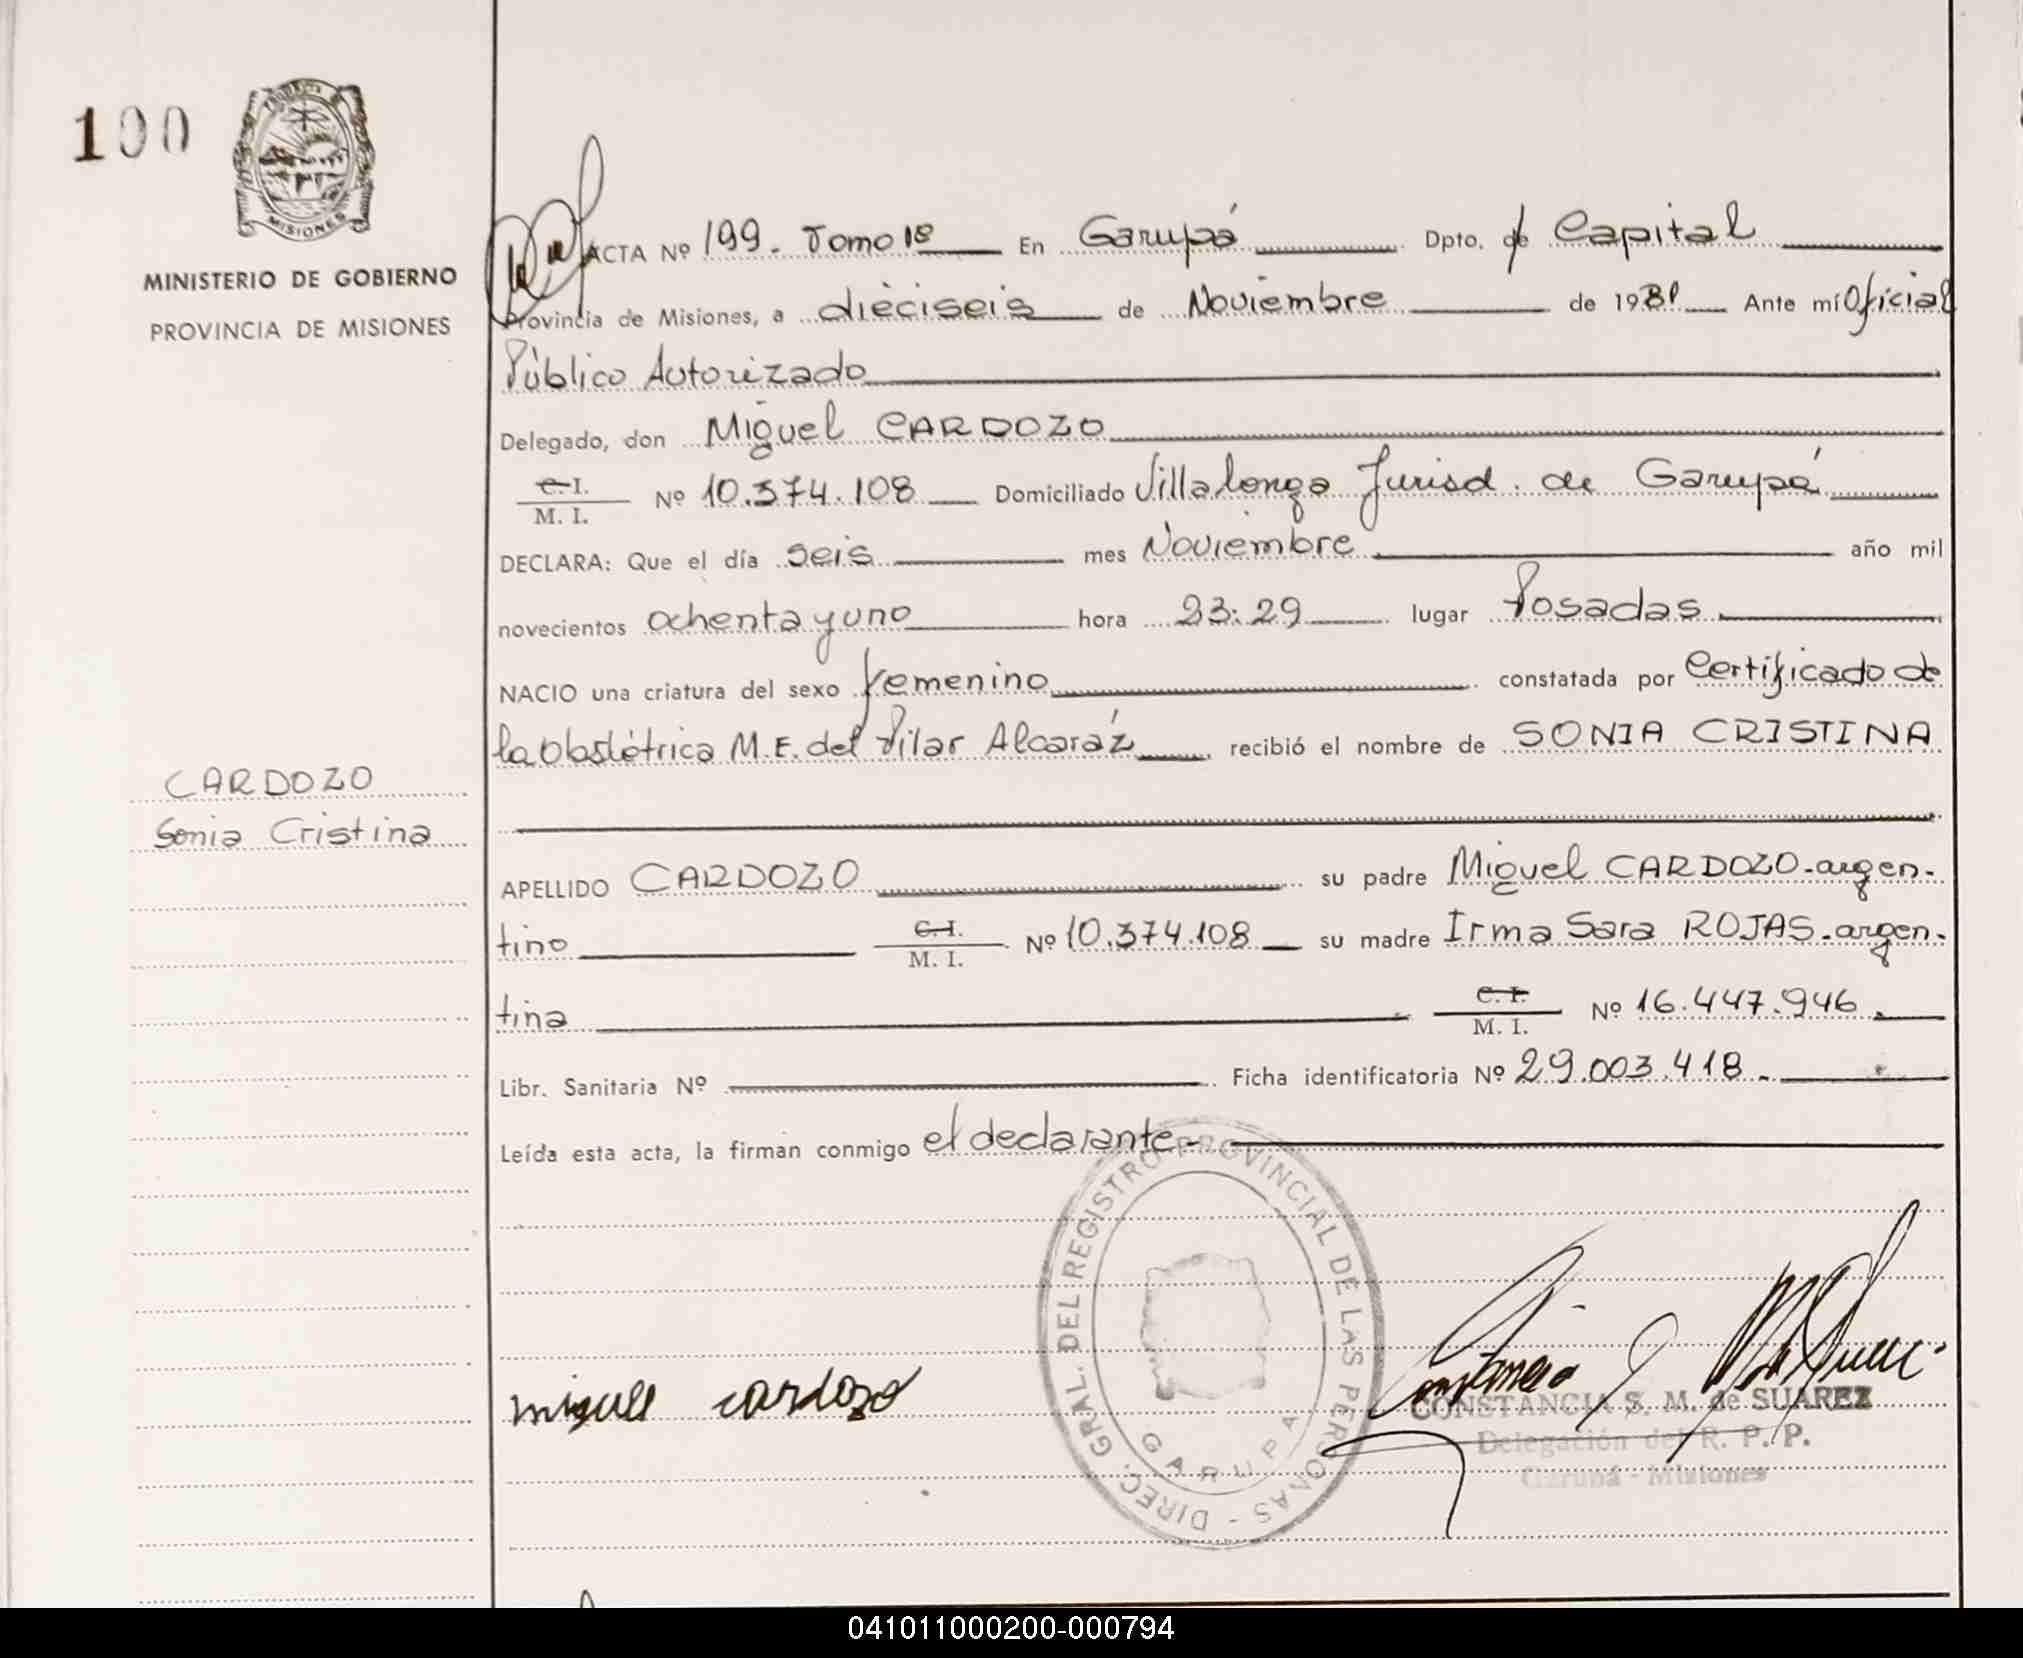 100
MISIONES
MINISTERIO DE GOBIERNO
PROVINCIA DE MISIONES
ACTA Nº 199. Tomo 1º En Garupá Dpto. de Capital
Provincia de Misiones, a dieciseis de Noviembre de 1981 Ante mí Oficial
Público Autorizado
Delegado, don Miguel CARDOZO
C. I.
M. I. Nº 10.374.108 Domiciliado Villalonga Jurisd. de Garupá
DECLARA: Que el día seis mes Noviembre año mil
novecientos ochenta y uno hora 23:29 lugar Posadas
NACIO una criatura del sexo femenino constatada por Certificado de
la Obstétrica M.E. del Pilar Alcaráz recibió el nombre de SONIA CRISTINA
CARDOZO
Sonia Cristina
APELLIDO CARDOZO su padre Miguel CARDOZO-argen-
tino C. I. M. I. Nº 10.374.108 su madre Irma Sara ROJAS-argen-
tina C. I. M. I. Nº 16.447.946
Libr. Sanitaria Nº Ficha identificatoria Nº 29.003.418
Leída esta acta, la firman conmigo el declarante
DIREC. GRAL. DEL REGISTRO PROVINCIAL DE LAS PERSONAS -
GARUPA
miguel cardozo
CONSTANCIA S. M. de SUAREZ
Delegación del R. P. P.
Garupá - Misiones
041011000200-000794